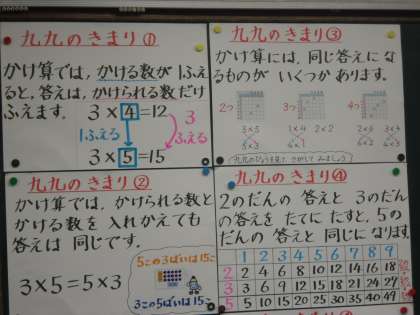 九九のきまり①
かけ算では、かける数が1ふえ
ると、答えは、かけられる数だけ
ふえます。
3×4=12
1ふえる
3
ふえる
3×5=15
九九のきまり③
かけ算には、同じ答えにな
るものが いくつか あります。
2つ 3つ 4つ
九九のきまり②
かけ算では、かけられる数と
かける数を入れかえても
答えは 同じです。
5この3ばいは15こ
3×5=5×3
3この5ばいは15こ
九九のきまり④
2のだんの 答えと 3のだん
の答えを たてに たすと、5の
だんの 答えと 同じになります。
1 2 3 4 5 6 7 8 9
2 2 4 6 8 10 12 14 16 18
3 3 6 9 12 15 18 21 24
5 5 10 15 20 25 30 35 40